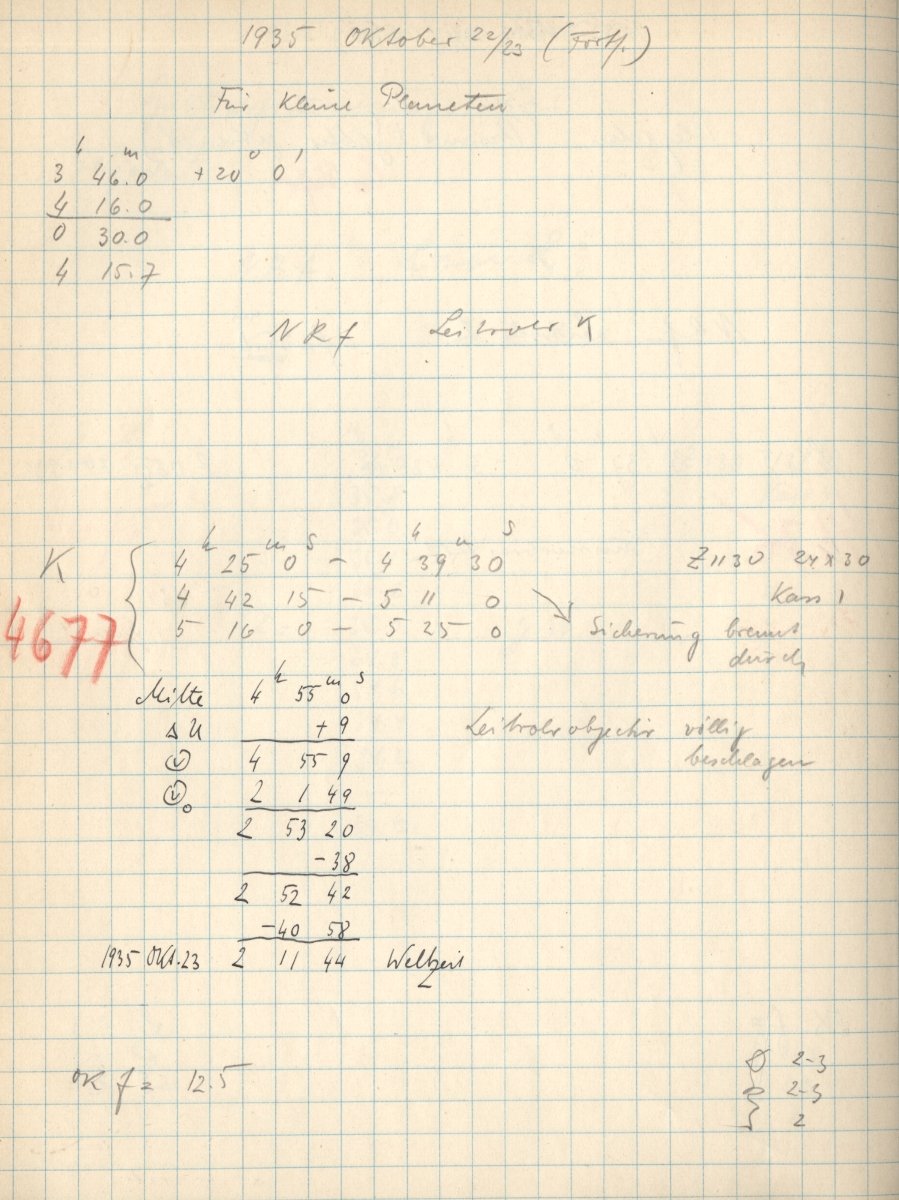 1935 Oktober 22/23 (Forts.)
Für Kleine Planeten
3h 46m.0 +20° 0'
4 16.0
0 30.0
4 15.7
NRf Leitrohr K
K 4h 25m 0s – 4h 39m 30s Z 1130 24 x 30
4 42 15 – 5 11 0 Kass 1
4677 5 16 0 – 5 25 0 Sicherung brennt
durch
Mitte 4h 55m 0s
ΔU +9 Leitrohrobjektiv völlig
4 55 9 beschlagen
2 1 49
2 53 20
-38
2 52 42
-40 58
1935 Okt. 23 2 11 44 Weltzeit
OK f = 12.5
2-3
2-3
2